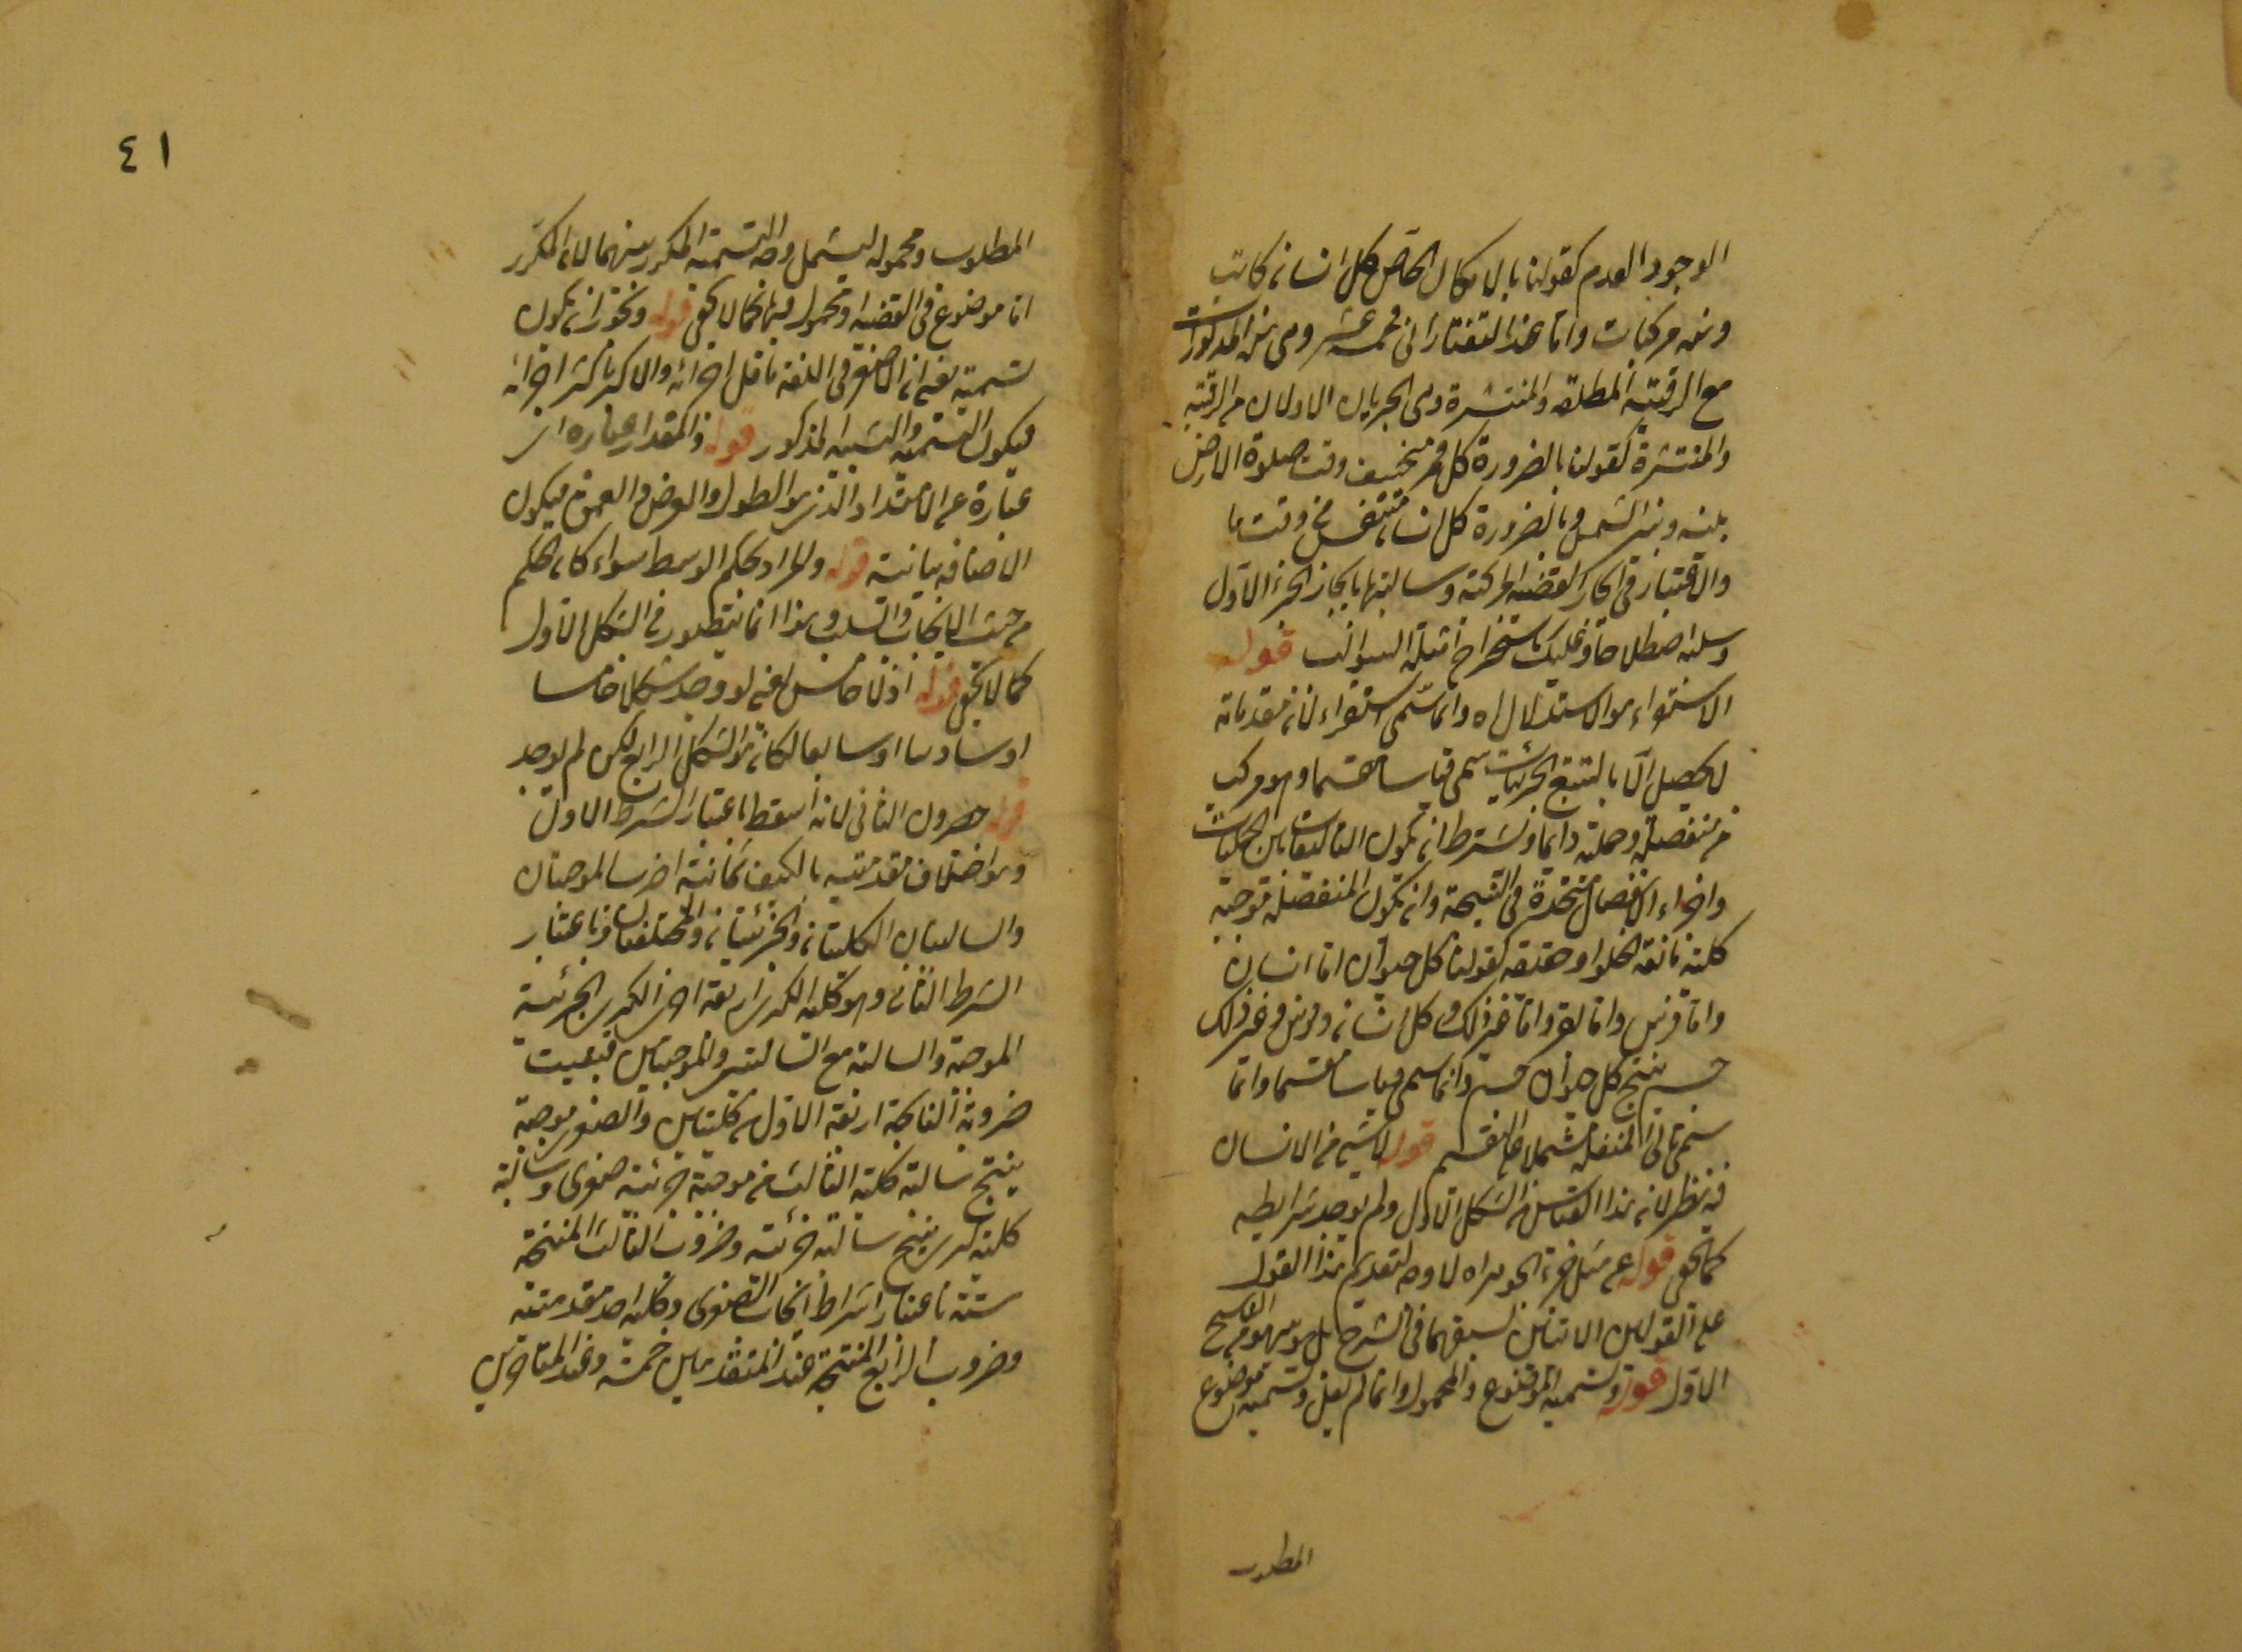 الوجود العدم كقولنا بالامكان الخاص كل انسان كاتب
وهذه مركبات واما عند التفتازانى فخمسة عشر وهى هذه المذكورات
مع الوقتية المطلقة والمنتشرة وهى الجزءان الاولان من الوقتية
والمنتشرة كقولنا بالضرورة كل قمر منخسف وقت حيلولة الارض
بينه وبين الشمس وبالضرورة كل انسان متنفس فى وقت ما
والاعتبار فى ايجاب القضية المركبة وسالبتها بايجاب الجزء الاول
وسلبه اصطلاحا وعليك باستخراج امثلة السوالب قوله
الاستقراء هو الاستدلال اه وانما سمى استقراء لان مقدماته
لا يحصل الا بالتتبع الجزئيات سمى قياسا مقسما وهو مركب
من منفصلة وحملية دائما ويشترط ان يكون التأليفات بين الحمليات
واجزاء الانفصال متحدة فى النتيجة وان يكون المنفصلة موجبة
كلية مانعة الخلو او حقيقية كقولنا كل حيوان اما انسان
واما فرس واما بقر واما غير ذلك وكل انسان وفرس وغير ذلك
جسم ينتج كل حيوان جسم وانما سمى قياسا مقسما وانما
سمى تالى المنفصلة مشتملا على التقسيم قوله لا شئ من الانسان
فيه نظر لان هذا القياس من الشكل الاول ولم يوجد شرايطه
كما يخفى قوله عن مثل جزء الجوهر اه لا وجه لتقديم هذا القول
على القولين الاتيين لسبقهما فى الشرح بل هو سهو من الناسخ
الاول قوله وتسمية الموضوع والمحمول وانما لم يقل وتسمية موضوع
المطلوب
٤١
المطلوب ومحموله ليشمل وجه التسمية المكرر بينهما لان المكرر
اما موضوع فى القضية او محمول فيها كما لا يخفى قوله ويجوز ان يكون
تسمية يعنى ان الاصغر فى اللغة ما قل اجزائه والاكبر ما كثر اجزائه
فيكون التسمية والتشبيه المذكور قوله والمقدار عبارة اى
عبارة عن الامتداد الذى هو الطول والعرض والعمق فيكون
الاضافة بيانية قوله والمراد بحكم الوسط سواء كان الحكم
من حيث الايجاب والسلب وهذا انما يتصور فى الشكل الاول
كما لا يخفى قوله اذ لا خامس يعنى لو وجد شكلا خامسا
او سادسا او سابعا لكان هو الشكل الرابع لكن لم يوجد
قوله ضروب الثانى لانه اسقط باعتبار الشرط الاول
وهو اختلاف مقدمتيه بالكيف ثمانية اضرب الموجبتان
والسالبتان الكليتان والجزئيتان والمختلفتان وباعتبار
الشرط الثانى وهو كلية الكبرى اربعة اخرى الكبرى الجزئية
الموجبة والسالبة مع السالبتين والموجبتين فبقيت
ضروبه الناتجة اربعة الاول من كليتين والصغرى موجبة
ينتج سالبة كلية الثالث من موجبة جزئية صغرى وسالبة
كلية كبرى ينتج سالبة جزئية وضروب الثالث المنتجة
ستة باعتبار اشتراط ايجاب الصغرى وكلية احد مقدمتيه
وضروب الرابع المنتجة عند المتقدمين خمسة وعند المتأخرين